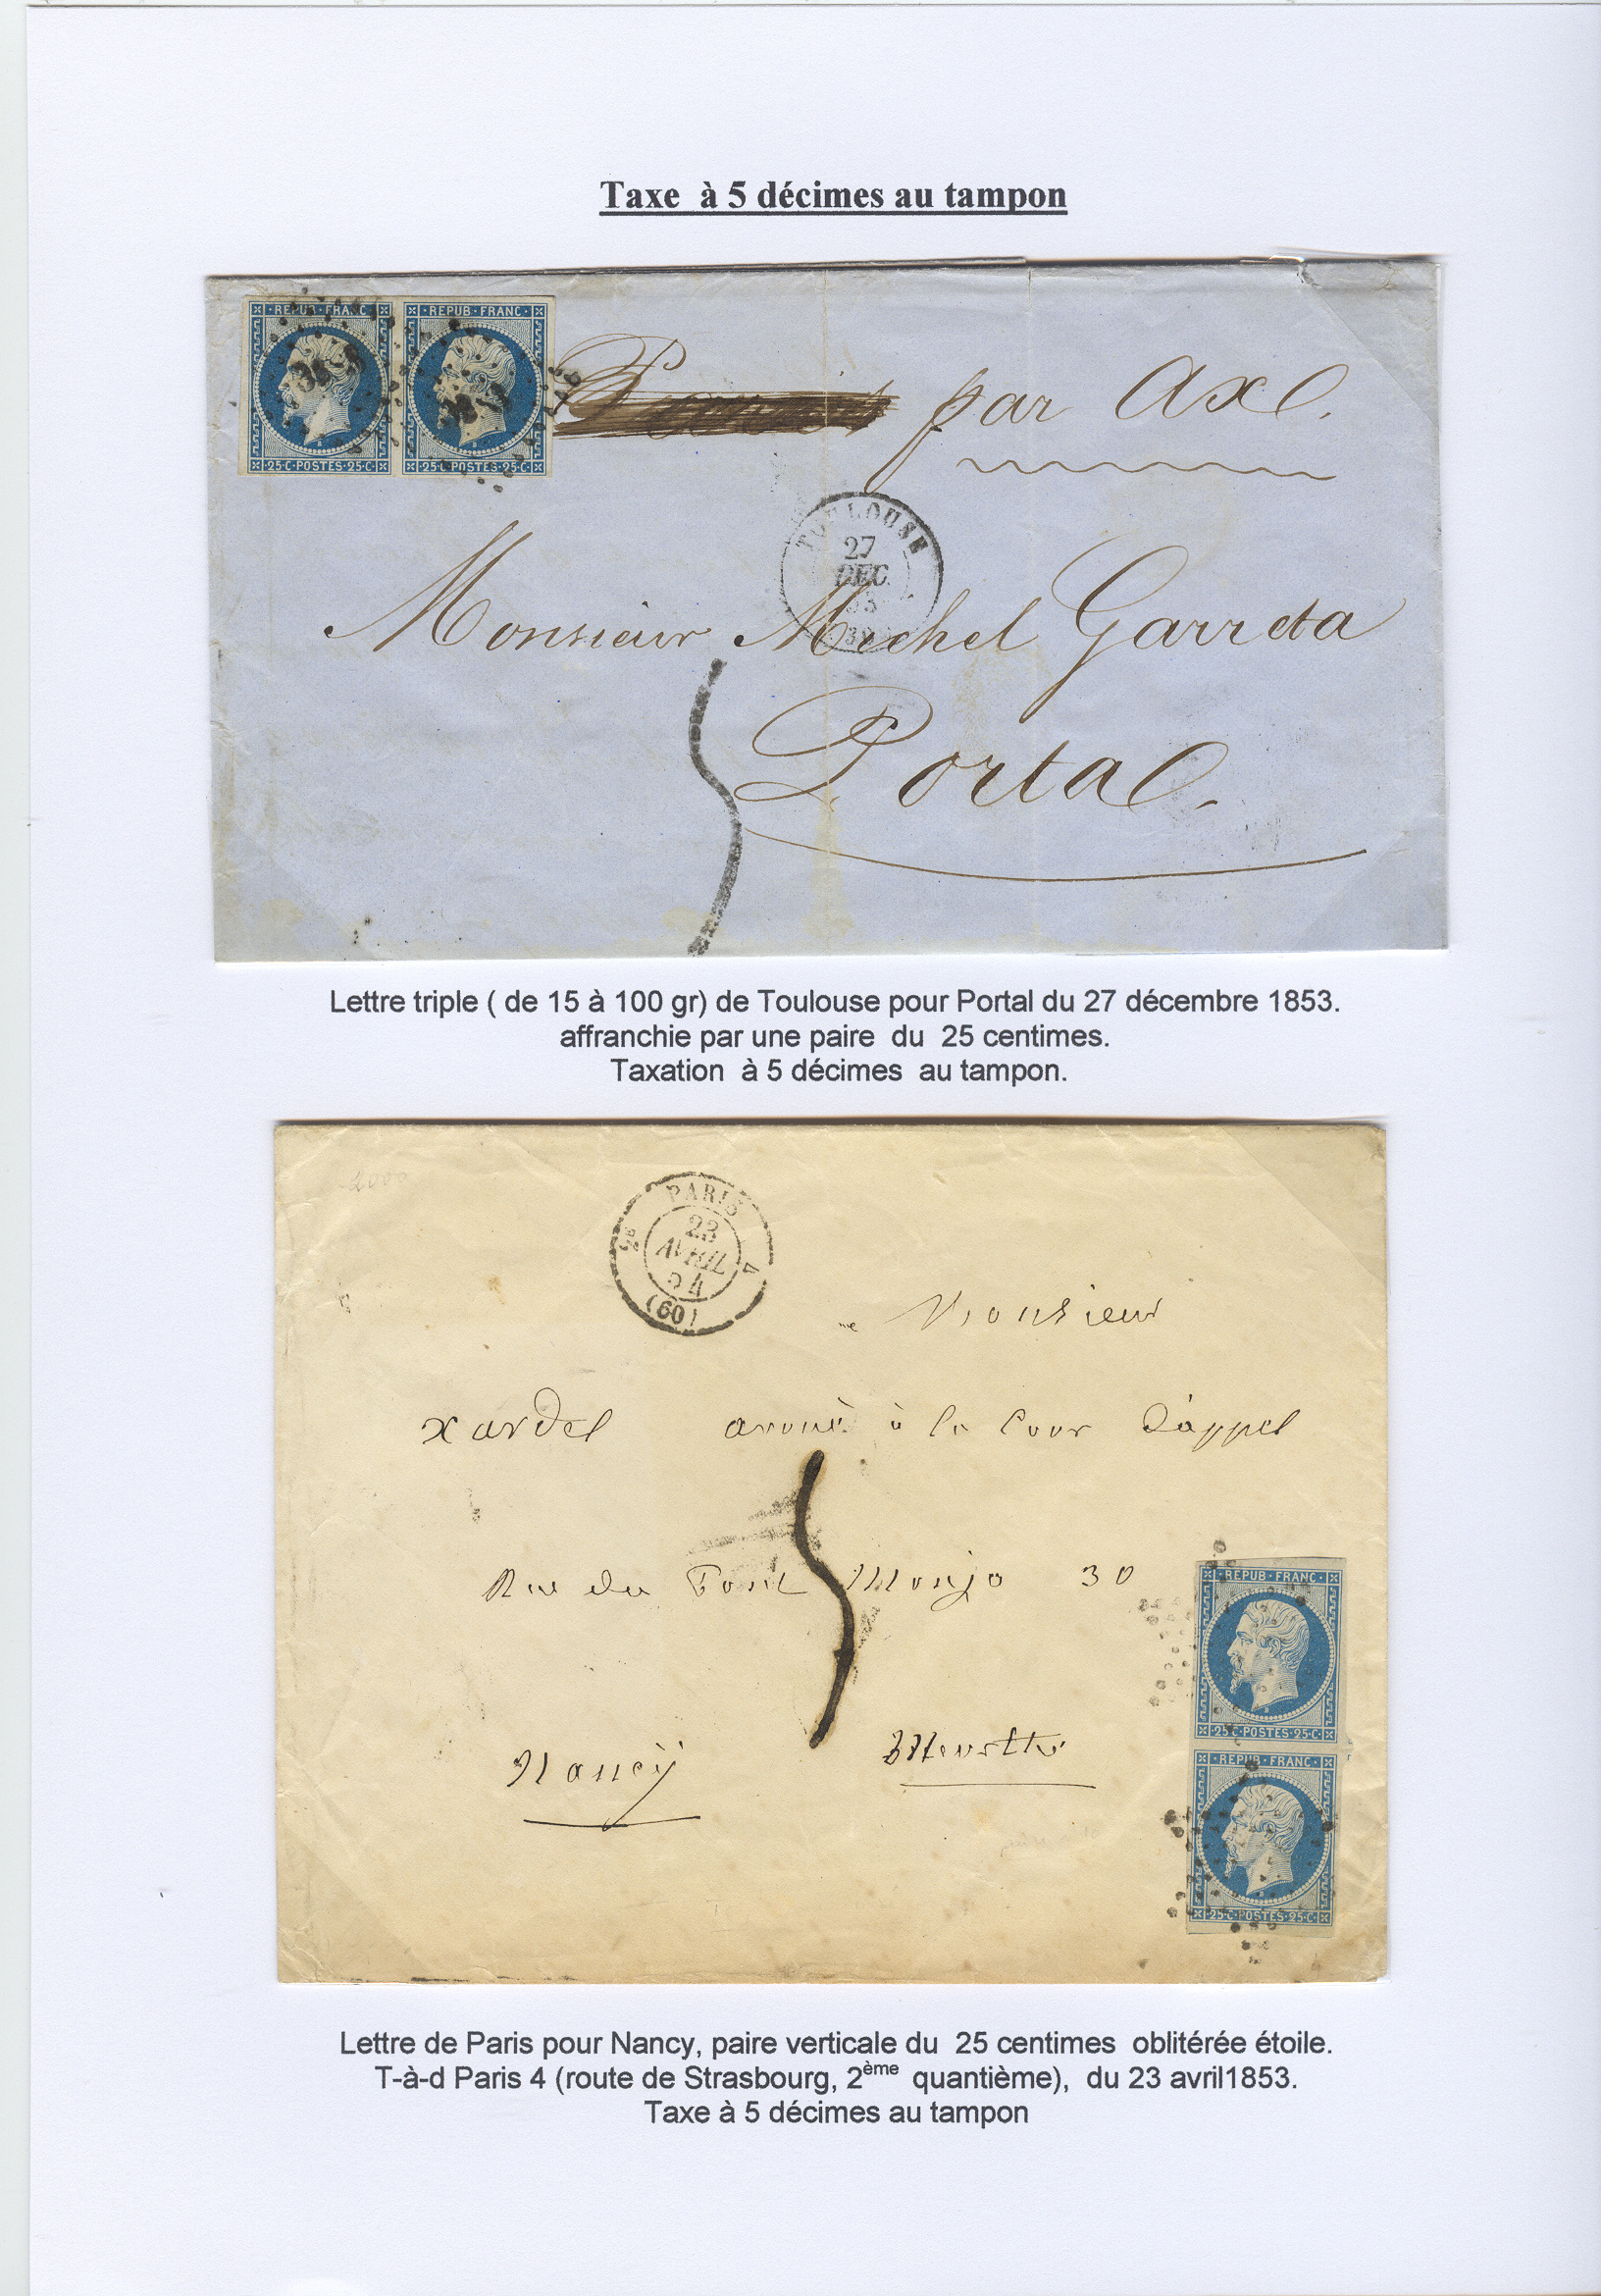 Taxe à 5 décimes au tampon
REPUB·FRANC· ·REPUB·FRANC·
par Axl.
·25·C·POSTES·25·C· ·25·C·POSTES·25·C·
TOULOUSE
27
DEC
53
Monsieur Michel Garreta
5
Portal.
Lettre triple ( de 15 à 100 gr) de Toulouse pour Portal du 27 décembre 1853.
affranchie par une paire du 25 centimes.
Taxation à 5 décimes au tampon.
2000
PARIS
2e 23 4
AVRIL
54
(60)
Monsieur
Xardel avoué à la Cour d'appel
5
Rue du Pont Monja 30
·REPUB·FRANC·
·25·C·POSTES·25·C·
Nancy Meurthe
·REPUB·FRANC·
·25·C·POSTES·25·C·
Lettre de Paris pour Nancy, paire verticale du 25 centimes oblitérée étoile.
T-à-d Paris 4 (route de Strasbourg, 2ème quantième), du 23 avril1853.
Taxe à 5 décimes au tampon